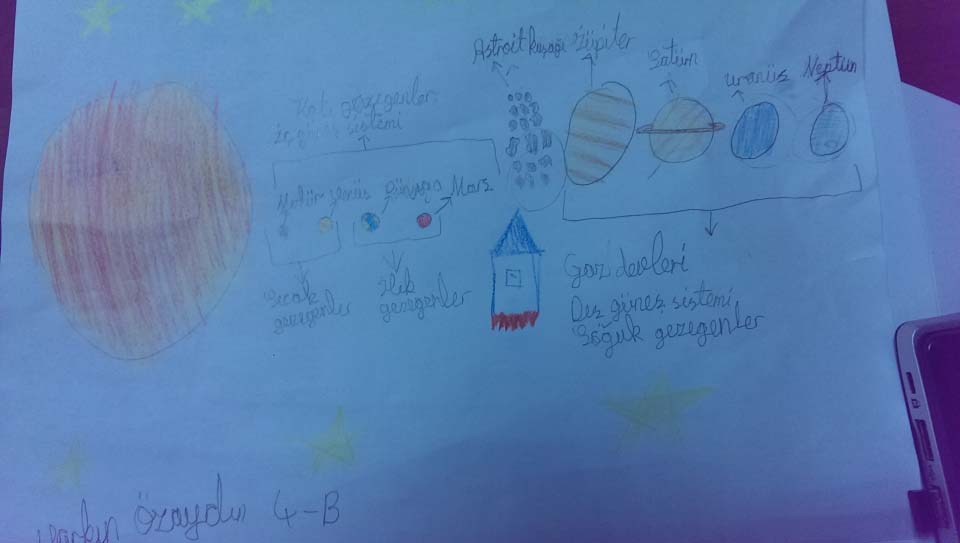 Astroit kuşağı
Jüpiter
Satürn
uranüs
Neptün
Katı gezegenler
iç güneş sistemi
Merkür
Venüs
Dünya
Mars
Sıcak
gezegenler
ılık
gezegenler
Gaz devleri
Dış güneş sistemi
Soğuk gezegenler
Özaydın 4-B